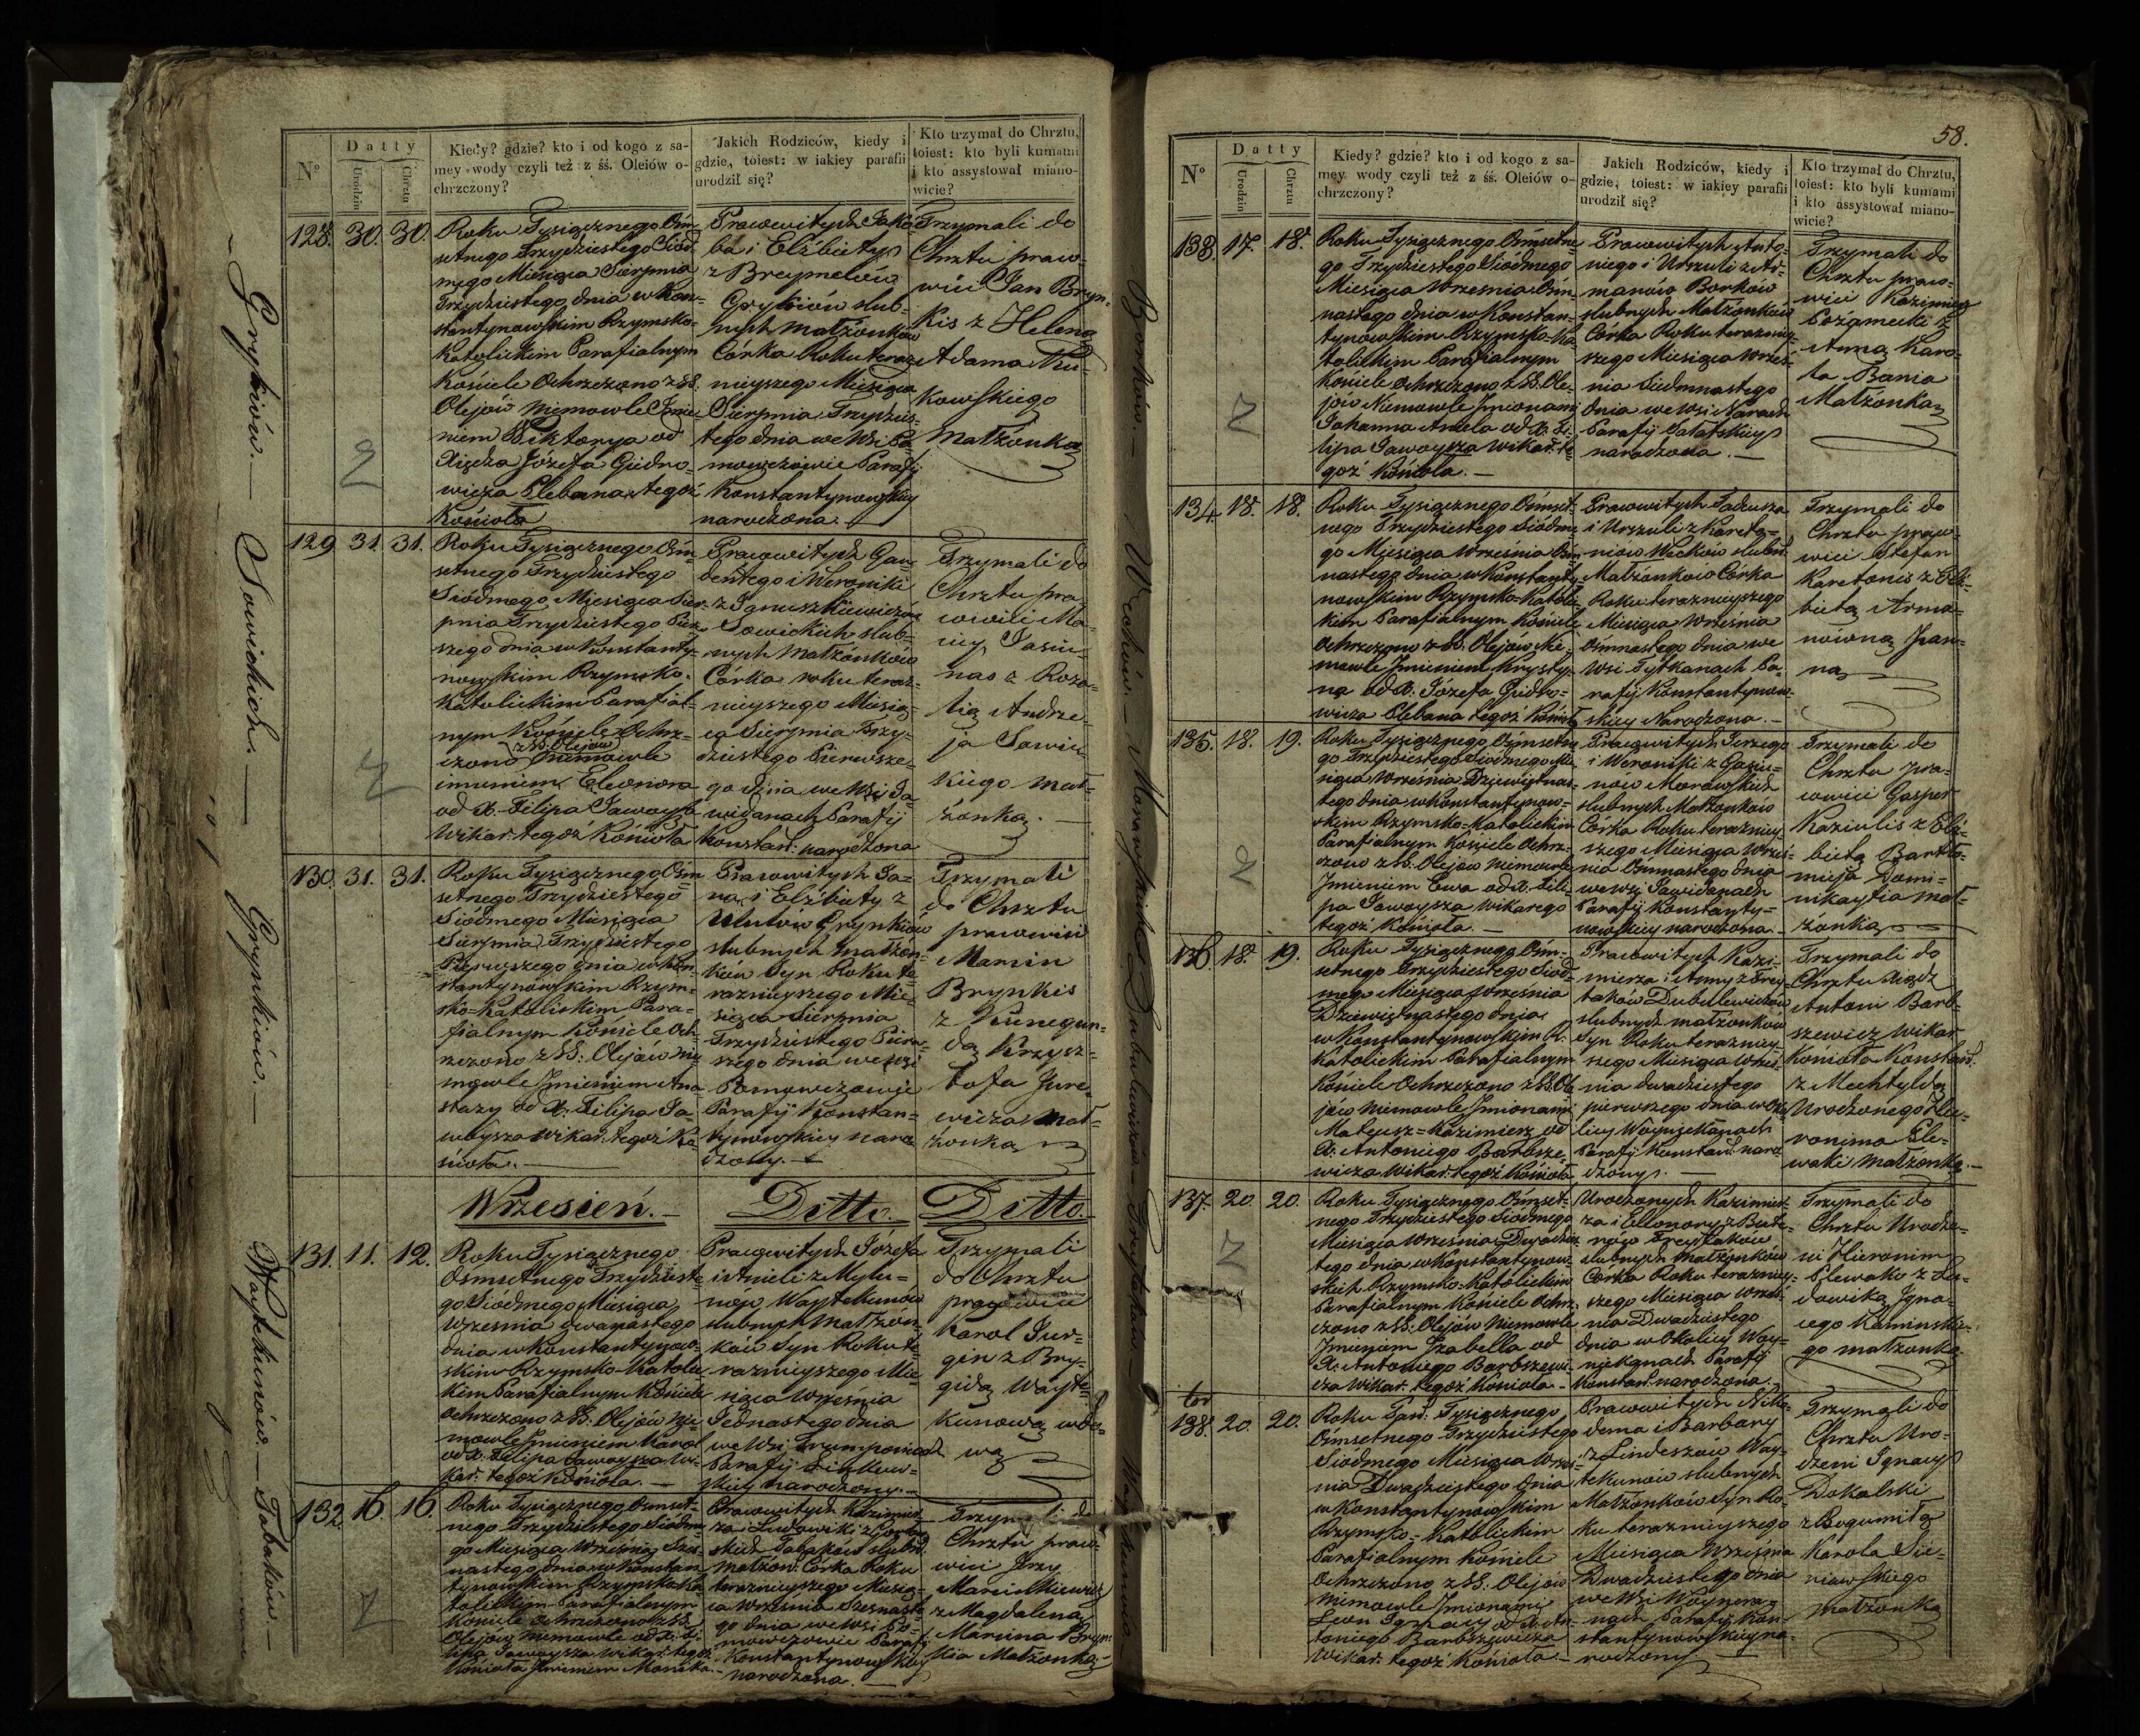 58.
Nº
Datty
Urodzin
Chrztu
Kiedy? gdzie? kto i od kogo z sa-
mey wody czyli też z śś. Oleiów o-
chrzczony?
Jakich Rodziców, kiedy i
gdzie, toiest: w iakiey parafii
urodził się?
Kto trzymał do Chrztu,
toiest: kto byli kumami
i kto assystował miano-
wicie?
Sawickich.
128. 30. 30.
Roku Tysiącznego Ośm-
setnego Trzydziestego Siód-
mego Miesiąca Sierpnia
Trzydziestego dnia w Kon-
stantynowskim Rzymsko-
Katolickim Parafialnym
Kościele Ochrzczono z SS.
Olejów niemowle Imie-
niem Wiktorya od
Xiędza Józefa Giedro-
wicza Plebana tegoż
Kościoła
Pracowitych Jakó-
ba i Elżbiety
ślub-
nych małżonków
Córka Roku teraz-
nieyszego Miesiąca
Sierpnia Trzydzies-
tego dnia we Wsi
Parafij
Konstantynowskiey
narodzona.
Trzymali do
Chrztu praco-
wici Jan Bryn-
kis z Heleną
Adama
małżonką
129 31. 31.
Roku Tysiącznego Ośm-
setnego Trzydziestego
Siódmego Miesiąca Sier-
pnia Trzydziestego Pier-
szego dnia w Konstanty-
nowskim Rzymsko-
Katolickim Parafial-
nym Kościele Ochrz-
z SS. Olejów
czono niemowle
imieniem Eleonora
od X. Filipa Jawoysza
Wikar. tegoż Kościoła
Pracowitych Gau-
dentego i Weroniki
Sawickich ślub-
nych Małżonków
Córka roku teraz-
nieyszego Miesią-
ca Sierpnia Trzy-
dziestego Pierwsze-
go dnia we Wsi Ja-
widanach Parafij
Konstant: narodzona
Trzymali do
Chrztu pra-
cowici
z Roza-
lią Andrze-
ja Sawic-
kiego mał-
żonką.
130. 31. 31.
Roku Tysiącznego Ośm-
setnego Trzydziestego
Siódmego Miesiąca
Sierpnia Trzydziestego
Pierwszego dnia w Kon-
stantynowskim Rzym-
sko-Katolickim Para-
fialnym Kościele Och-
rzczono z SS: Olejów nie-
mowle Imieniem Ana-
stazy od X. Filipa Ja-
woysza Wikar. tegoż Ko-
ścioła.
Pracowitych Ja-
na i Elżbiety z
Grynków
ślubnych małżon-
ków Syn Roku te-
raznieyszego Mie-
siąca Sierpnia
Trzydziestego Pierw-
szego dnia we wsi
Parafij Konstan-
tynowskiey naro-
dzony.
Trzymali
do Chrztu
pracowici
Marcin
Brynkis
z Kunegun-
dą Krzysz-
tofa Jure-
wicza mał-
żonką
Wrzesień. Ditto. Ditto.
131. 11. 12.
Roku Tysiącznego
Ośmsetnego Trzydzieste-
go Siódmego Miesiąca
Września dwunastego
dnia w Konstantynow-
skim Rzymsko-Katolic-
kim Parafialnym Kościele
ochrzczono z SS: Olejów nie-
mowle Imieniem Karol
od X. Filipa Jawoysza Wi-
kar. tegoż Kościoła.
Pracowitych Józefa
i Anieli z
Waytekunów
ślubnych Małżon-
ków Syn Roku te-
raznieyszego Mie-
siąca Września
Jednastego dnia
we Wsi
Parafij
narodzony.
Trzymali
do Chrztu
pracowici
Karol Jur-
gin z Bry-
gidą Wayte-
kunową wdo-
wą
132. 16. 16.
Roku Tysiącznego Ośmset-
nego Trzydziestego Siódme-
go Miesiąca Września Szes-
nastego dnia w Konstan-
tynowskim Rzymsko-Ka-
tolickim Parafialnym
Kościele ochrzczono z SS.
Olejów niemowle od X. Fi-
lipa Jawoysza Wikar. tegoż
Kościoła Imieniem Monika.
Pracowitych Kazimie-
rza i Ludowiki
małżon. Córka Roku
teraznieyszego Miesią-
ca Września Szesnaste-
go dnia we Wsi
Parafij
Konstantynowskiey
narodzona.
Trzymali do
Chrztu praco-
wici Jerzy
z Magdaleną
Marcina Bryn-
kia Małżonką.
133. 17. 18.
Roku Tysiącznego Ośmsetne-
go Trzydziestego Siódmego
Miesiąca Września Ośm-
nastego dnia w Konstan-
tynowskim Rzymsko-Ka-
tolickim Parafialnym
Kościele ochrzczono z SS. Ole-
jów Niemowle Imionami
Johanna Aniela od X. Fi-
lipa Jawoysza Wikar. te-
goż Kościoła.
Pracowitych Anto-
niego i Urszuli z Ar-
manów Borków
ślubnych Małżonków
Córka Roku teraźniey-
szego Miesiąca Wrześ-
nia Siedmnastego
dnia we Wsi
Parafij
narodzona.
Trzymali do
Chrztu praco-
wici Kazimierz
z
Anną Karo-
la Bania
Małżonką
134. 18. 18.
Roku Tysiącznego Ośmset-
nego Trzydziestego Siódme-
go Miesiąca Września Ośm-
nastego dnia w Konstanty-
nowskim Rzymsko-Katolic-
kim Parafialnym Kościele
ochrzczono z SS. Olejów Nie-
mowle Imieniem Krysty-
na od X. Józefa Giedro-
wicza Plebana tegoż Kościoła
Pracowitych Tadeusza
i Urszuli z Kareto-
niów Wackow ślubn.
Małżonków Córka
Roku teraznieyszego
Miesiąca Września
Ośmnastego dnia we
Wsi Tytkanach Pa-
rafij Konstantynow-
skiey Narodzona.
Trzymali do
Chrztu praco-
wici Stefan
Karetonis z Elż-
bietą Arma-
nówną Pan-
ną
135. 18. 19.
Roku Tysiącznego Ośmsetne-
go Trzydziestego Siódmego Mie-
siąca Września Dziewiętnas-
tego dnia w Konstantynow-
skim Rzymsko-Katolickim
Parafialnym Kościele Ochrz-
czono z SS. Olejów niemowle
Imieniem Ewa od X. Fili-
pa Jawoysza wikarego
tegoż Kościoła.
Pracowitych Jerzego
i Weroniki z
Morawskich
ślubnych Małżonków
Córka Roku terazniey-
szego Miesiąca Wrześ-
nia Ośmnastego dnia
we Wsi Jawidanach
Parafij Konstanty-
nowskiey narodzona.
Trzymali do
Chrztu pra-
cowici Gasper
Kaziulis z Elż-
bietą Bartło-
mieja Domi-
nikaytia mał-
żonką
136. 18. 19.
Roku Tysiącznego Ośm-
setnego Trzydziestego Siód-
mego Miesiąca Września
Dziewiętnastego dnia
w Konstantynowskim R.
Katolickim Parafialnym
Kościele Ochrzczono z SS. Ole-
jów niemowle Imionami
Mateusz-Kazimierz od
X. Antoniego Barbsze-
wicza Wikar. tegoż Kościoła
Pracowitych Kazi-
mierza i Anny z Trey-
taków Dubulewiczów
ślubnych małżonków
Syn Roku terazniey-
szego Miesiąca Wrześ-
nia dwadziestego
pierwszego dnia w Oko-
licy Woyniekanach
Parafij Konstant. naro-
dzony.
Trzymali do
Chrztu Xiądz
Antoni Barb-
szewicz Wikar.
Kościoła Konstant.
z Mechtyldą
Urodzonego Hie-
ronima Ple-
waki małżonką.
137. 20. 20.
Roku Tysiącznego Ośmset-
nego Trzydziestego Siódmego
Miesiąca Września Dwadzies-
tego dnia w Konstantynow-
skim Rzymsko-Katolickim
Parafialnym Kościele Ochrz-
czono z SS: Olejów niemowle
Imieniem Izabella od
X. Antoniego Barbszewi-
cza Wikar. tegoż Kościoła.
Urodzonych Kazimie-
rza i Elleonory z
Treytaków
ślubnych małżonków
Córka Roku terazniey-
szego Miesiąca Wrześ-
nia Dwadziestego
dnia w Okolicy Woy-
niekanach Parafij
Konstant. narodzona.
Trzymali do
Chrztu Urodze-
ni Hieronim
Plewako z Lu-
dowiką Igna-
cego Kaminskie-
go małżonką.
138. 20. 20.
Roku Pań. Tysiącznego
Ośmsetnego Trzydziestego
Siódmego Miesiąca Wrześ-
nia Dwadziestego dnia
w Konstantynowskim
Rzymsko-Katolickim
Parafialnym Kościele
Ochrzczono z SS: Olejów
niemowle Imionami
Leon Ignacy od X. An-
toniego Barbszewicza
Wikar. tegoż Kościoła.
Pracowitych Niko-
dema i Barbary
z Lindeszów Way-
tekunów ślubnych
Małżonków Syn Ro-
ku teraznieyszego
Miesiąca Września
Dwadziestego dnia
we Wsi
Parafij Kon-
stantynowskiey na-
rodzony
Trzymali do
Chrztu Uro-
dzeni Ignacy
Dokalski
z Bogumiłą
Karola Sie-
niawskiego
małżonką